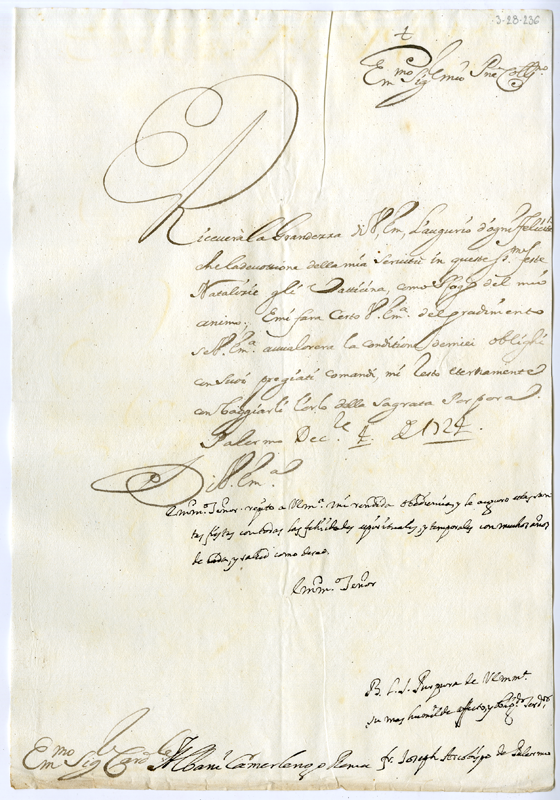 3-28-236
+
Em.mo Sig.re mio P.ne Coll.mo
Riceuerà la Grandezza di V. Em. l'augurio d'ogni Felicità
che la deuozione della mia seruitù in queste S.me feste
Natalizie gli Patticina, como sfogo del mio
animo; E mi farà certo V. Em.a del gradimento
se V. Em.a aualorerà la conditione de miei oblighi
con suoi pregiati comandi, mi resto eternamente
con baggiarli l'orlo della Sagrata Porpora.
Palermo Dec.re 4 1724.
Di V. Em.a
Emm.o Señor repito a VEm.a mi rendida obediencia, y le auguro estas san
tas fiestas con todas las felicidades espirituales, y temporales con muchos años
de vida, y salud como deseo.
Emm.o Señor
B. L. S. Purpura de VEmm.a
su mas humilde affecto, y oblig.do ser.dor
Em.mo Sig.r Card.le Albani Camerlengo Roma fr. Joseph Arcobispo de Palermo